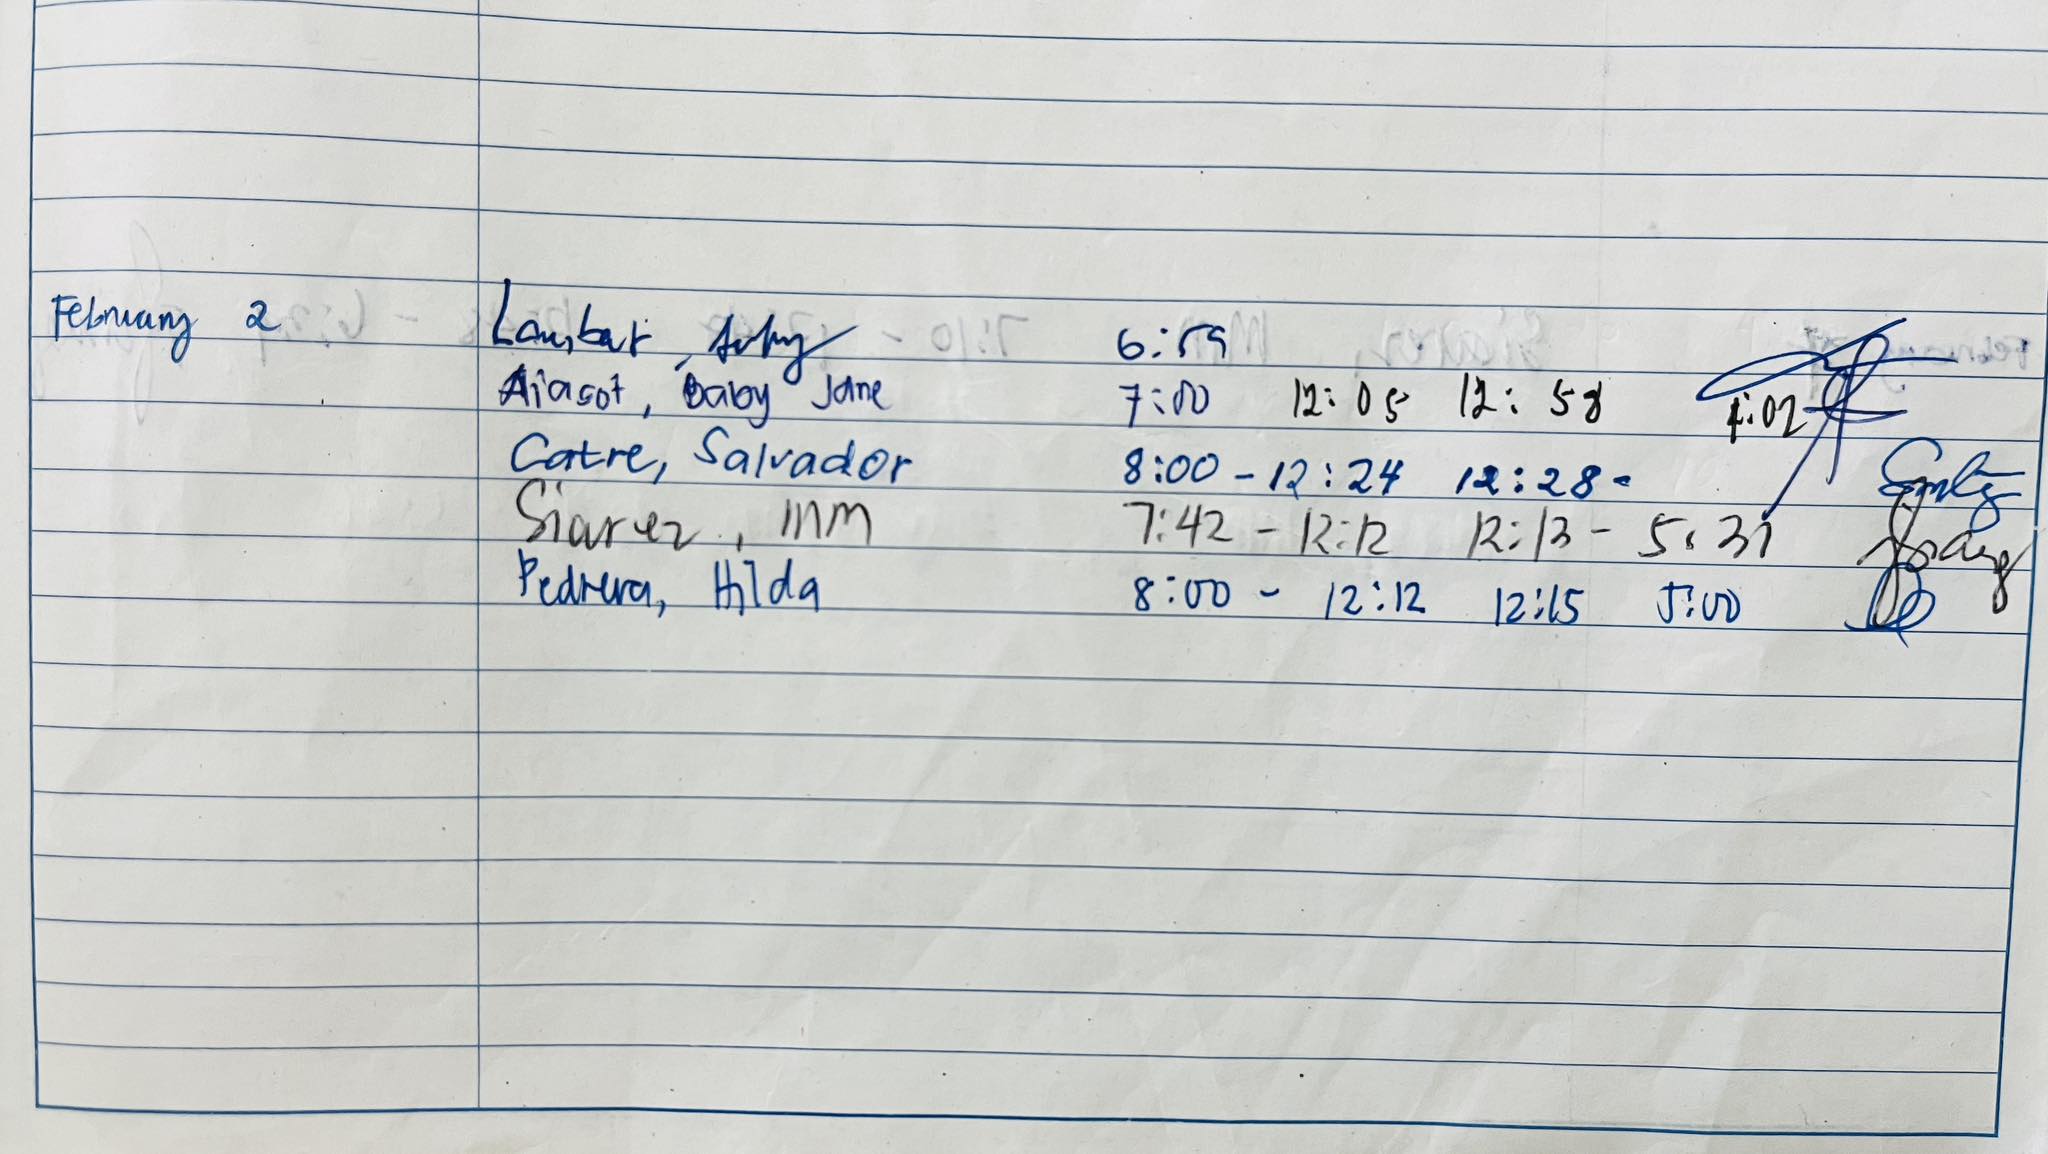 February 2 Lambat, 6:59
Aiasot, Baby Jane 7:00 12:05 12:58 4:02
Catre, Salvador 8:00 - 12:24 12:28 -
Siarez, MM 7:42 - 12:12 12:13 - 5:31
Pedrera, Hilda 8:00 - 12:12 12:15 5:00